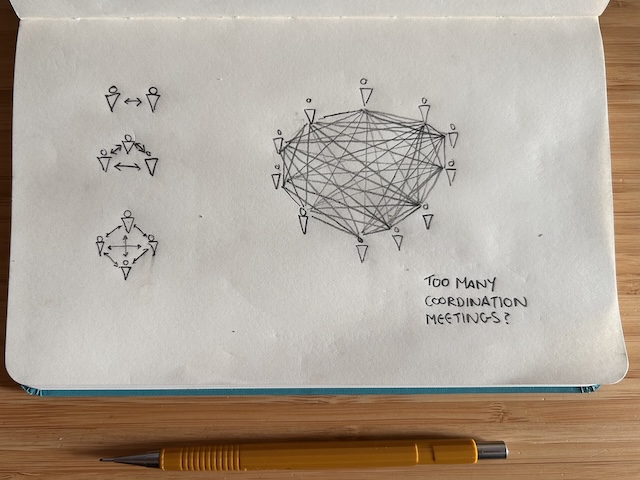 TOO MANY
COORDINATION
MEETINGS?